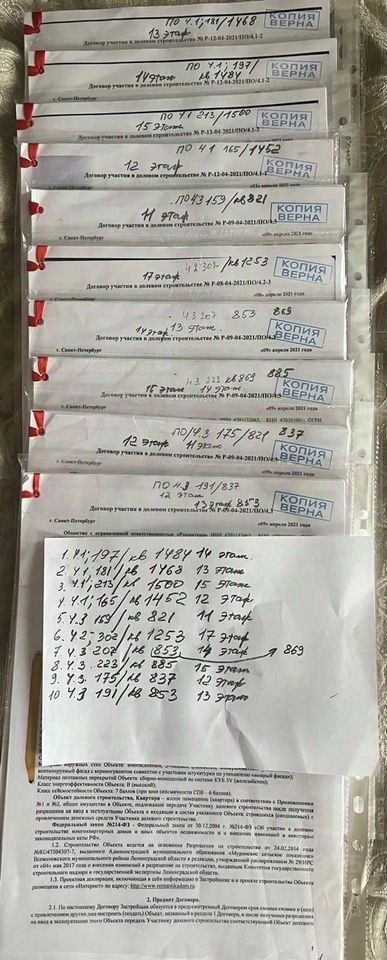 ПО 4.1; 181/1468
13 этаж
КОПИЯ ВЕРНА
Договор участия в долевом строительстве № Р-12-04-2021/ПО/4.1-2
ПО 4.1; 197/
14 этаж кв 1484
КОПИЯ ВЕРНА
Договор участия в долевом строительстве № Р-12-04-2021/ПО/4.1-2
г. Санкт-Петербург
ПО 4.1 213/1500
15 этаж
КОПИЯ ВЕРНА
Договор участия в долевом строительстве № Р-12-04-2021/ПО/4.1-2
ПО 4.1 165/1452
12 этаж
КОПИЯ ВЕРНА
Договор участия в долевом строительстве № Р-12-04-2021/ПО/4.1-1
г. Санкт-Петербург
ПО 4.3 159/кв 821
11 этаж
КОПИЯ ВЕРНА
Договор участия в долевом строительстве № Р-09-04-2021/ПО/4.3
г. Санкт-Петербург
«09» апреля 2021 года
4.2 302/кв 1253
17 этаж
КОПИЯ ВЕРНА
Договор участия в долевом строительстве № Р-08-04-2021/ПО/4.2-3
г. Санкт-Петербург
апреля 2021 года
4.3 207 853 869
14 этаж 13 этаж
КОПИЯ ВЕРНА
Договор участия в долевом строительстве № Р-09-04-2021/ПО/4.3
г. Санкт-Петербург
«09» апреля 2021 года
4.3 223 кв 869 885
15 этаж 14 этаж
КОПИЯ ВЕРНА
Договор участия в долевом строительстве № Р-09-04-2021/ПО/4.3
г. Санкт-Петербург
«09» апреля 2021 года
ПО/4.3 175/821 837
12 этаж 11 этаж
КОПИЯ ВЕРНА
Договор участия в долевом строительстве № Р-09-04-2021/ПО/4.3
г. Санкт-Петербург
ПО 4.3 191/837
12 этаж
13 этаж 853
КОПИЯ ВЕРНА
Договор участия в долевом строительстве № Р-09-04-2021/ПО/4.3
г. Санкт-Петербург
«09» апреля 2021 года
Общество с ограниченной ответственностью
1. 4.1; 197/кв 1484 14 этаж.
2. 4.1; 181/кв 1468 13 этаж
3. 4.1; 213/кв 1500 15 этаж
4. 4.1; 165/кв 1452 12 этаж
5. 4.3 159/кв 821 11 этаж
6. 4.2; 302/кв 1253 17 этаж
7. 4.3 207/кв 853, 14 этаж 869
8. 4.3. 223/кв 885 15 этаж
9. 4.3; 175/кв 837 12 этаж
10. 4.3 191/кв 853 13 этаж
Класс энергоэффективности Объекта: В (высокий);
Класс сейсмостойкости Объекта: 7 баллов (при зоне сейсмичности СПб – 6 баллов).
Объект долевого строительства, Квартира – жилое помещение (квартира) в соответствии с Приложениями
№1 и №2, общее имущество в Объекте, подлежащее передаче Участнику долевого строительства после получения
разрешения на ввод в эксплуатацию Объекта и входящее в состав указанного Объекта,
привлечением денежных средств Участника долевого строительства.
Федеральный закон №214-ФЗ – Федеральный закон от 30.12.2004 г. №214-ФЗ «Об участии в долевом
строительстве многоквартирных домов и иных объектов недвижимости и о внесении изменений в некоторые
законодательные акты РФ».
1.2. Строительство Объекта ведется на основании Разрешения на строительство от 24.02.2014 года
Всеволожского муниципального района Ленинградской области,
строительного надзора и государственной экспертизы Ленинградской области.
1.3. Проектная декларация, включающая в себя информацию о Застройщике и о проекте строительства Объекта
размещена в сети «Интернет» на адресу: http://www.romantikadom.ru.
2. Предмет Договора.
2.1. По настоящему Договору Застройщик обязуется в предусмотренный Договором срок своими силами и (или)
с привлечением других лиц построить (создать) Объект, указанный в разделе 1 Договора, и после получения разрешения
на ввод в эксплуатацию этого Объекта передать Участнику долевого строительства соответствующий Объект долевого
1